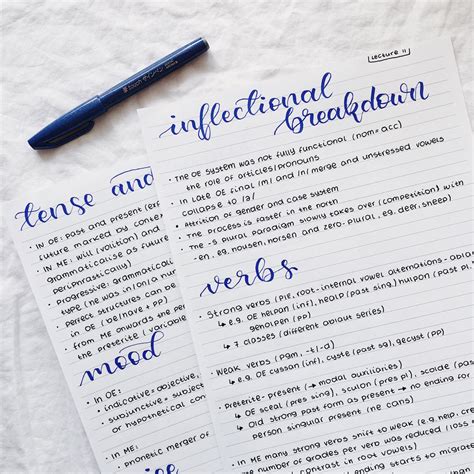 Lecture 11
inflectional
breakdown
• The OE system was not fully functional (nom=acc)
the role of articles/pronouns
• In late OE final /m/ and /n/ merge and unstressed vowels
collapse to /ə/
• Attrition of gender and case system
• The process is faster in the north
• The -s plural paradigm slowly takes over (competition) with
-en. eg. housen, horsen and zero-plural, eg. deer, sheep)
verbs
• Strong verbs (PIE, root-internal vowel alternations -
↳ e.g. OE helpan (inf), healp (past sing) hulpon (past
geholpen (pp)
↳ 7 classes (different ablaut series)
• Weak verbs (PGm, -t/-d)
↳ e.g. OE cyssan (inf), cyste (past sg), gecyst (pp)
• Preterite-present (→ modal auxiliaries)
↳ OE sceal (pres sing), sculon (pres pl), scolde (past
↳ Old strong past form as present → no ending for
person singular present (he cans)
• IN ME many strong verbs shift to weak (e.g. help,
• number of grades per verb was reduced (loss
contrast in root vowels)
ending starts to migrate
tense and
• IN OE: past and present
future marked by
• IN ME: will (volition) and
grammaticalise as future
periphrastically)
• Progressive: grammatical
type (he was in/on/a
• Perfect structures can be
in OE (be/have + pp)
• from ME onwards the
the preterite (variable
mood
• In OE:
↳ indicative = objective,
↳ subjunctive = subject
or hypothetical
• In ME:
• phonetic merger of